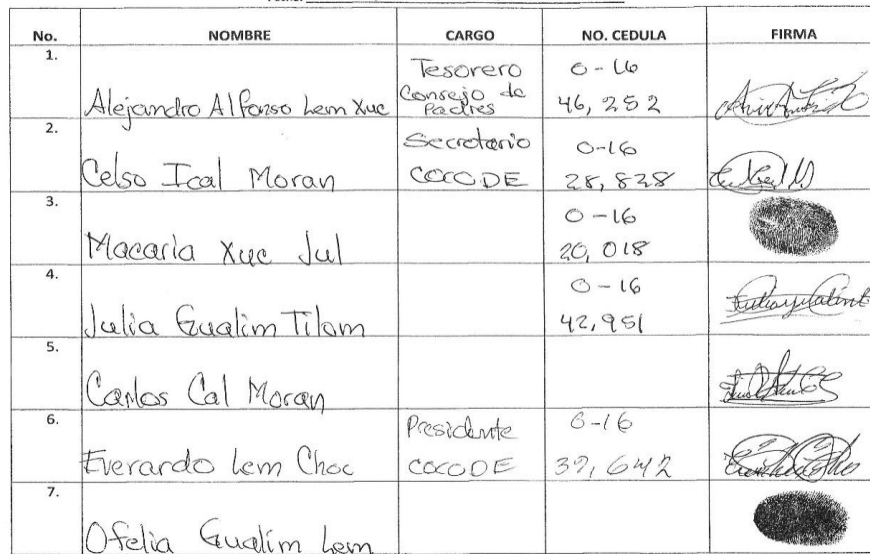 No. NOMBRE CARGO NO. CEDULA FIRMA
1. Alejandro Alfonso Lem Xuc Tesorero Consejo de Padres O-16 46,252
2. Celso Ical Moran Secretario COCODE O-16 28,828
3. Macaria Xuc Jul O-16 20,018
4. Julia Gualim Tilom O-16 42,951
5. Carlos Cal Moran
6. Everardo Lem Choc Presidente COCODE O-16 39,642
7. Ofelia Gualim Lem